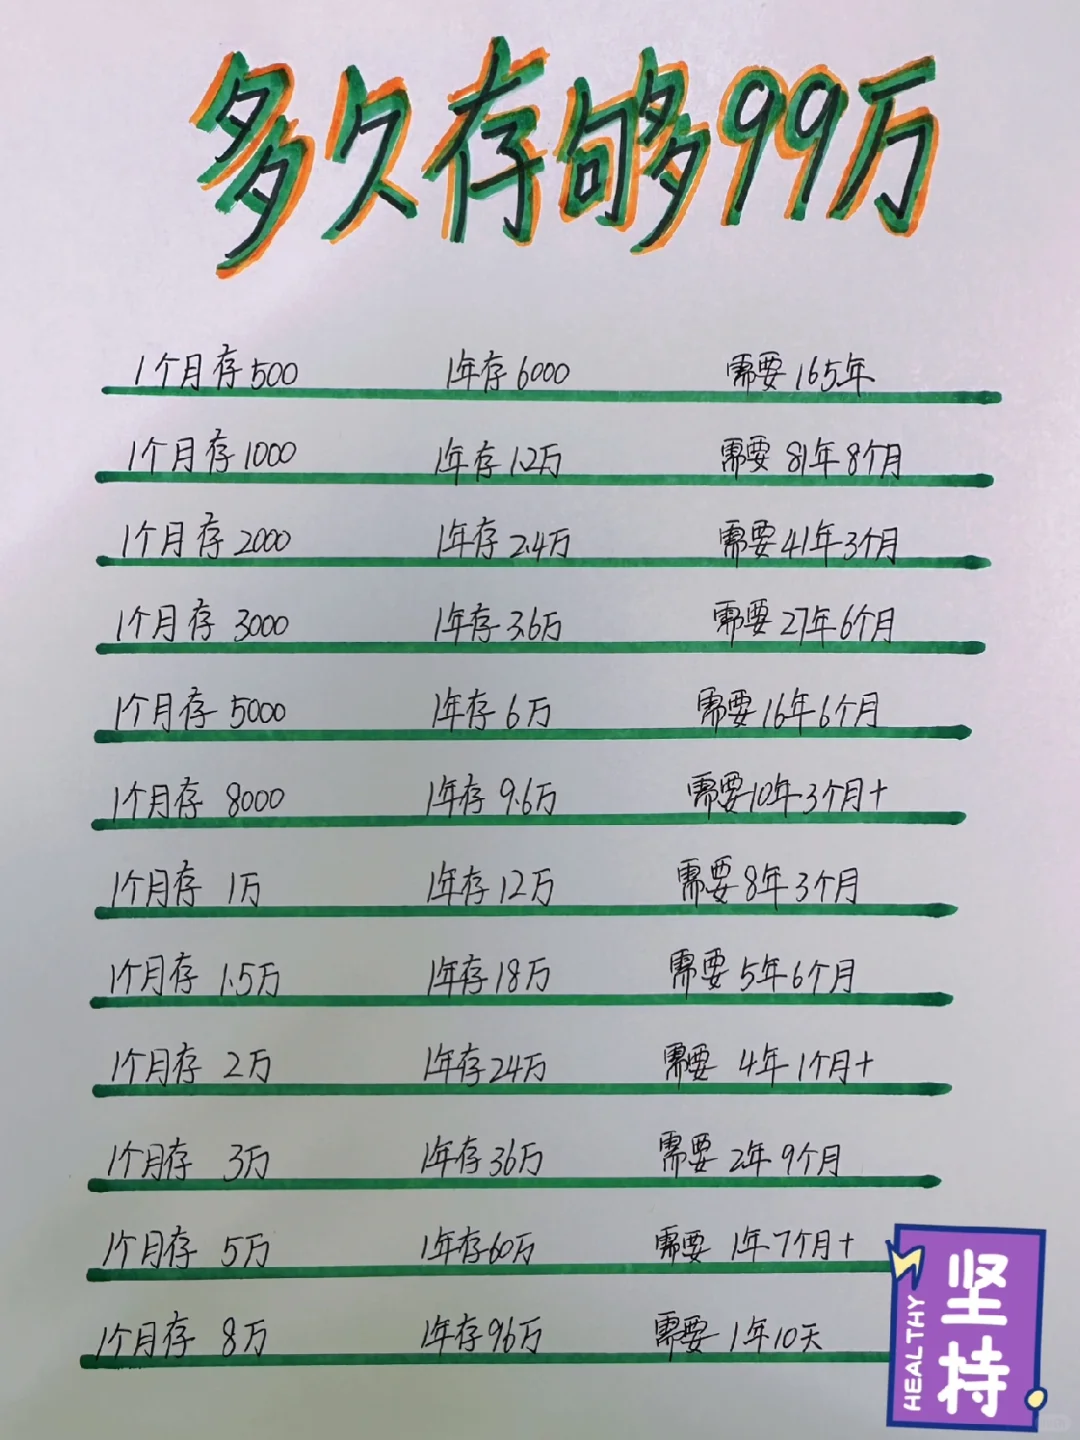 多久存够99万
1个月存500 1年存6000 需要165年
1个月存1000 1年存1.2万 需要81年8个月
1个月存2000 1年存2.4万 需要41年3个月
1个月存3000 1年存3.6万 需要27年6个月
1个月存5000 1年存6万 需要16年6个月
1个月存8000 1年存9.6万 需要10年3个月+
1个月存1万 1年存12万 需要8年3个月
1个月存1.5万 1年存18万 需要5年6个月
1个月存2万 1年存24万 需要4年1个月+
1个月存3万 1年存36万 需要2年9个月
1个月存5万 1年存60万 需要1年7个月+
1个月存8万 1年存96万 需要1年10天
坚持
HEALTHY